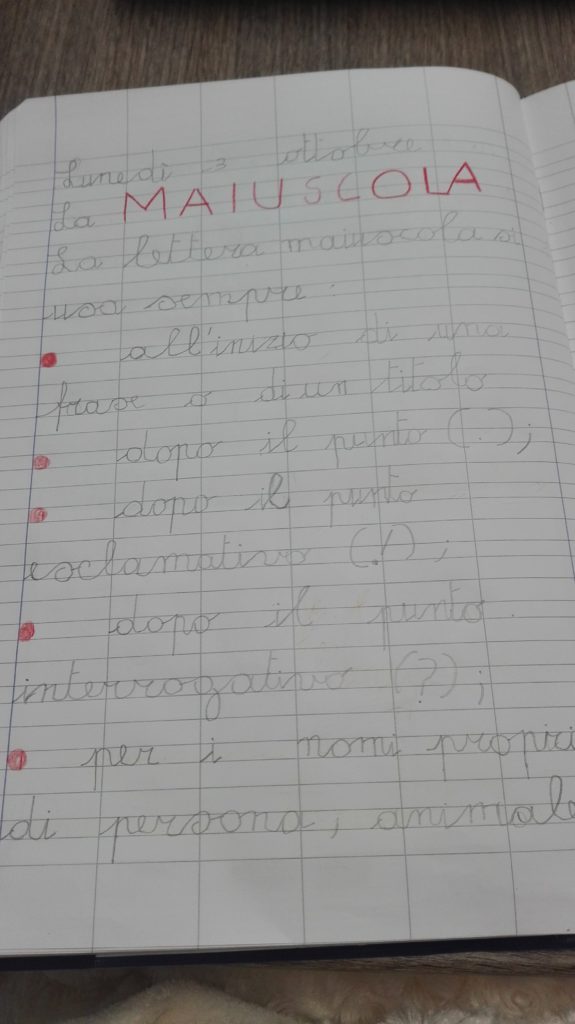 Lunedì 3 ottobre
La MAIUSCOLA
La lettera maiuscola si
usa sempre:
• all'inizio di una
frase o di un titolo
• dopo il punto (.);
• dopo il punto
esclamativo (!);
• dopo il punto
interrogativo (?);
• per i nomi propri
di persona, animale